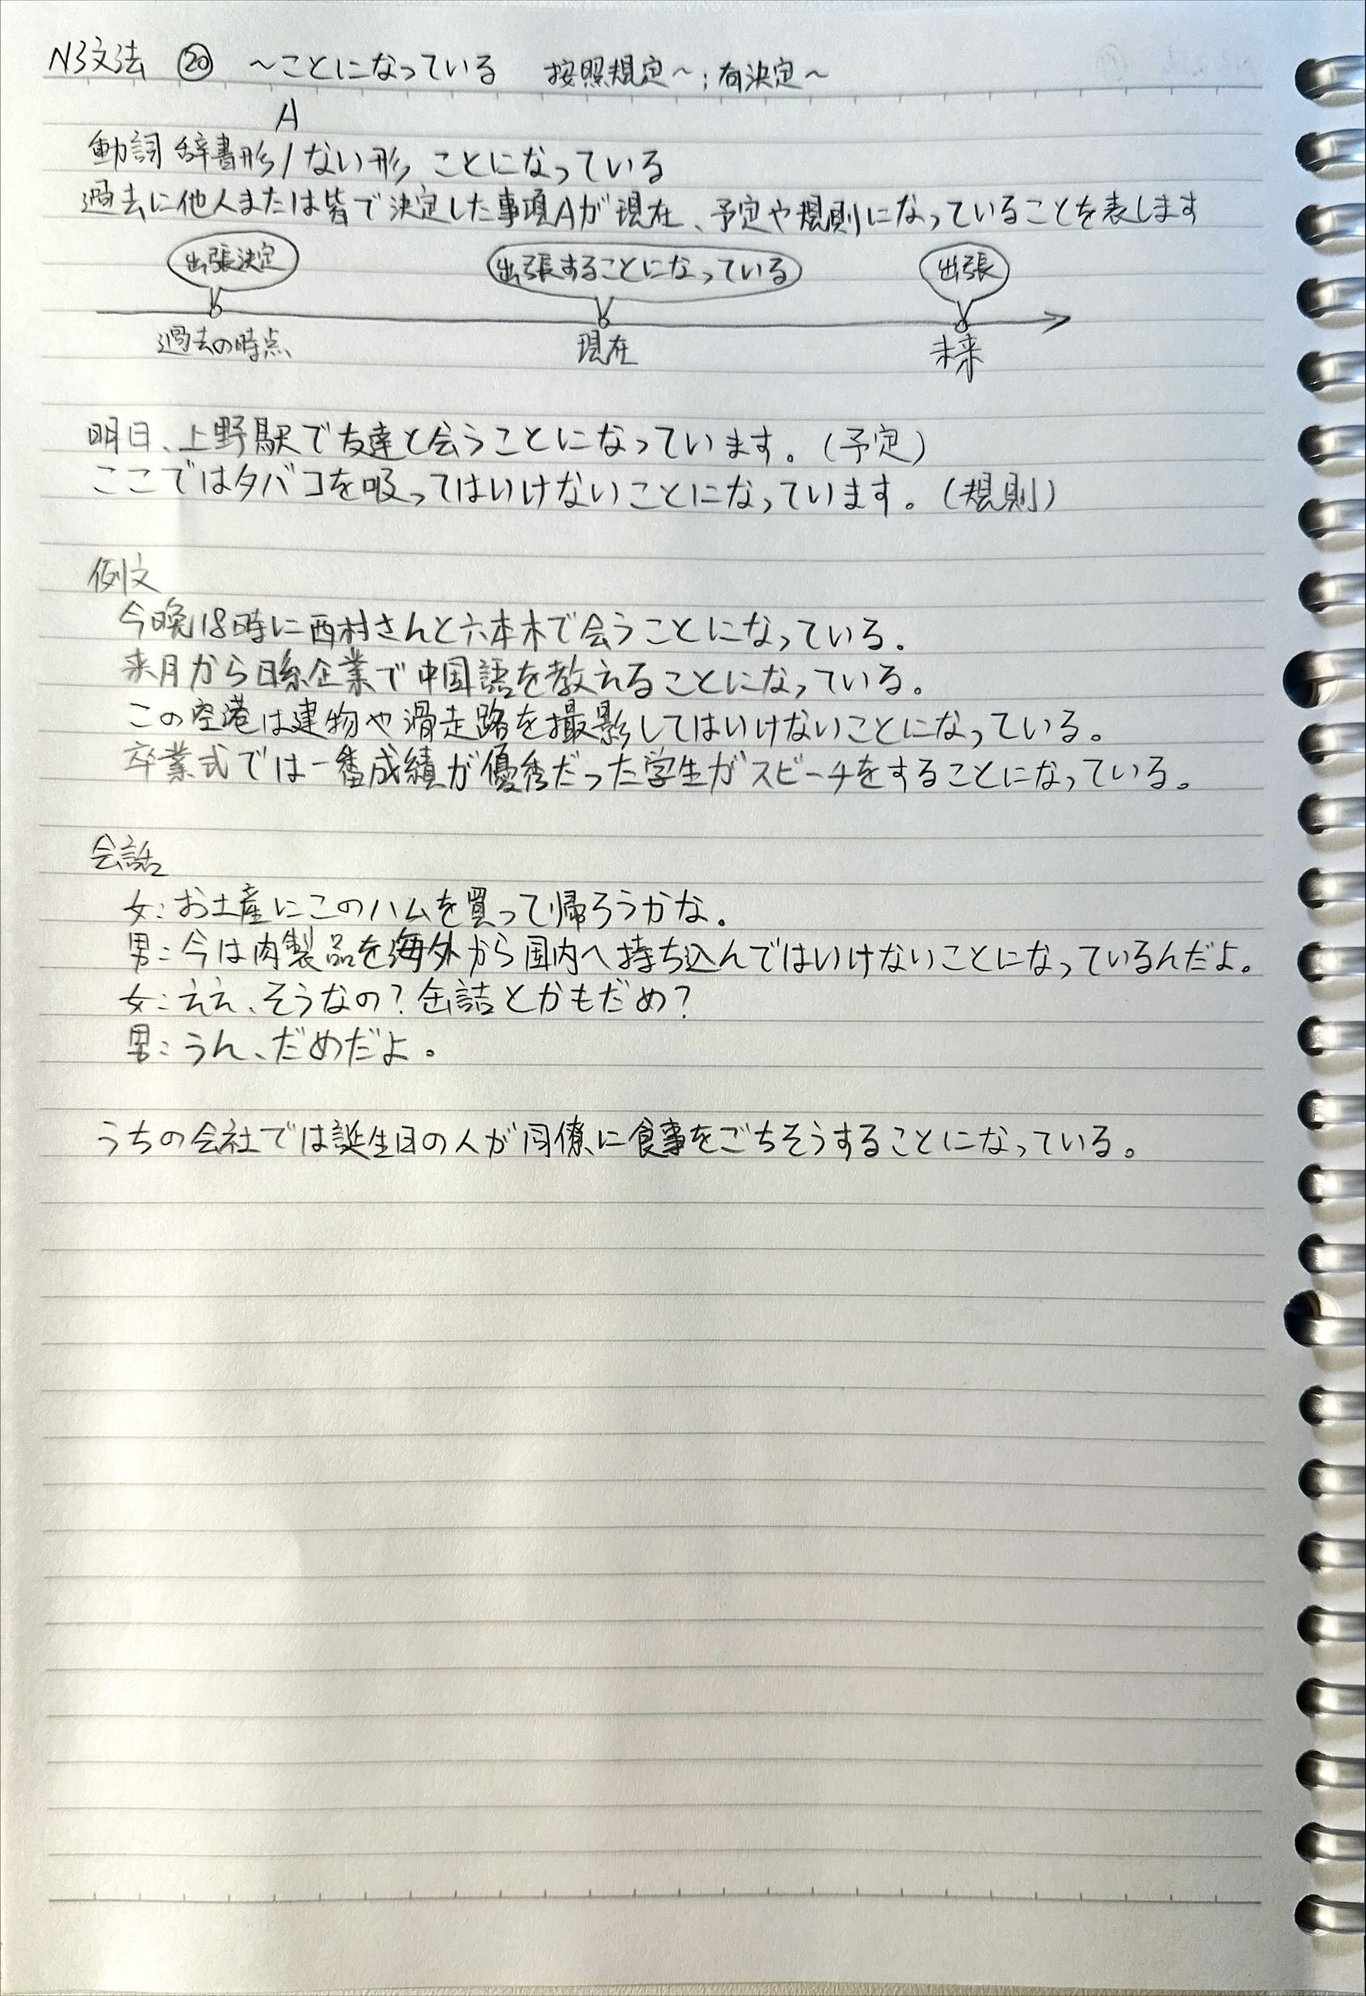 N3文法 ⑳ ～ことになっている 按照規定～；有決定～
A
動詞 辞書形/ない形 ことになっている
過去に他人または皆で決定した事項Aが現在、予定や規則になっていることを表します
出張決定 出張することになっている 出張
過去の時点 現在 未来
明日、上野駅で友達と会うことになっています。（予定）
ここではタバコを吸ってはいけないことになっています。（規則）
例文
今晩18時に西村さんと六本木で会うことになっている。
来月から日系企業で中国語を教えることになっている。
この空港は建物や滑走路を撮影してはいけないことになっている。
卒業式では一番成績が優秀だった学生がスピーチをすることになっている。
会話
女：お土産にこのハムを買って帰ろうかな。
男：今は肉製品を海外から国内へ持ち込んではいけないことになっているんだよ。
女：ええ、そうなの？缶詰とかもだめ？
男：うん、だめだよ。
うちの会社では誕生日の人が同僚に食事をごちそうすることになっている。